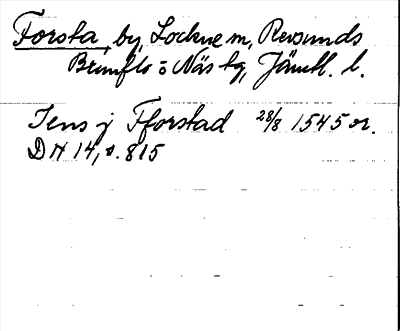 Forsta, by, Lockne sn, Revsunds
Brunflo o Näs tg, Jämtl. l.
Jens j Fforstad 28/8 1545 or.
DN 14, s. 815